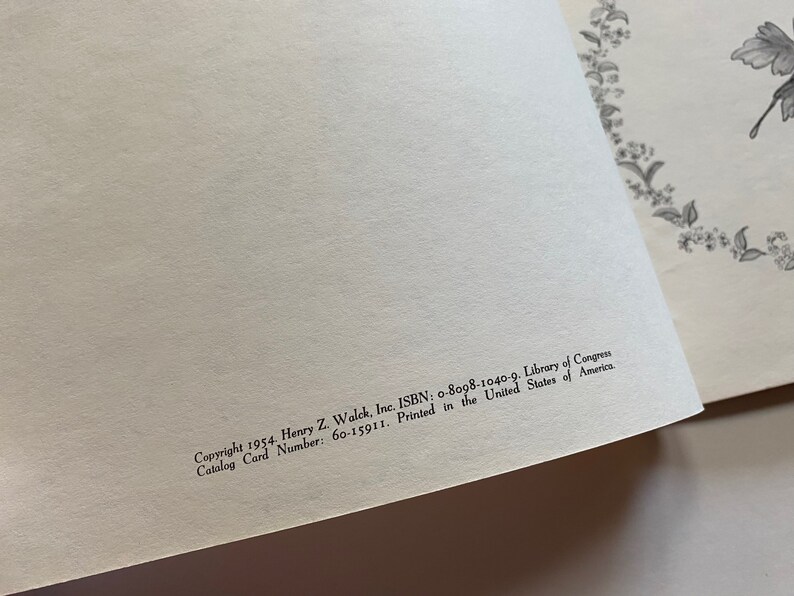 Copyright 1954. Henry Z. Walck, Inc. ISBN: 0-8098-1040-9. Library of Congress
Catalog Card Number: 60-15911. Printed in the United States of America.